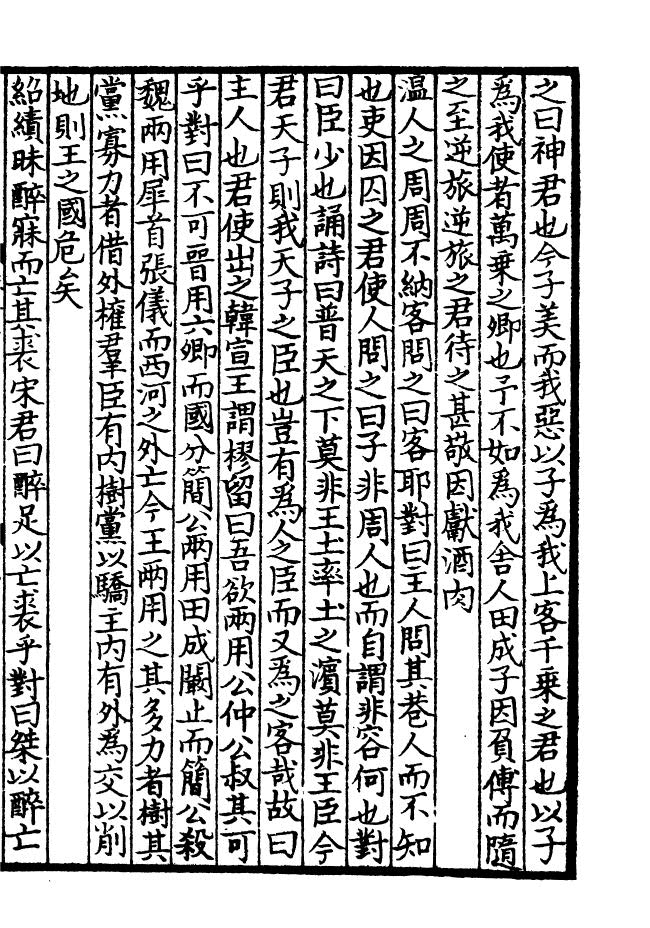 之曰神君也今子美而我惡以子爲我上客千乗之君也以子
爲我使者萬乗之卿也子不如爲我舎人田成子因負傳而隨
之至逆旅逆旅之君待之甚敬因獻酒肉
温人之周周不納客問之曰客耶對曰主人問其巷人而不知
也吏因囚之君使人問之曰子非周人也而自謂非客何也對
曰臣少也誦詩曰普天之下莫非王土率土之濵莫非王臣今
君天子則我天子之臣也豈有爲人之臣而又爲之客哉故曰
主人也君使出之韓宣王謂樛留曰吾欲兩用公仲公叔其可
乎對曰不可晉用六卿而國分簡公兩用田成闞止而簡公殺
魏兩用犀首張儀而西河之外亡今王兩用之其多力者樹其
黨寡力者借外權羣臣有内樹黨以驕主内有外爲交以削
地則王之國危矣
紹績昧醉寐而亡其裘宋君曰醉足以亡裘乎對曰桀以醉亡